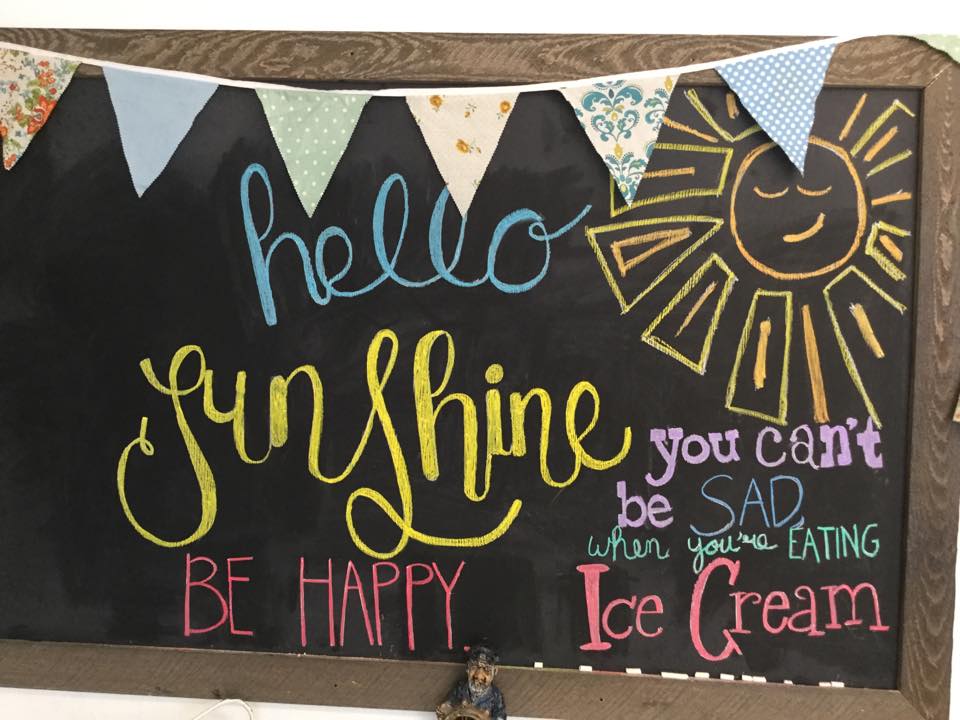 hello
Sunshine
BE HAPPY.
you can't
be SAD
when you're EATING
Ice Cream